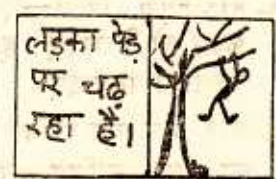 लड़का पेड़
पर चढ़
रहा हैं।